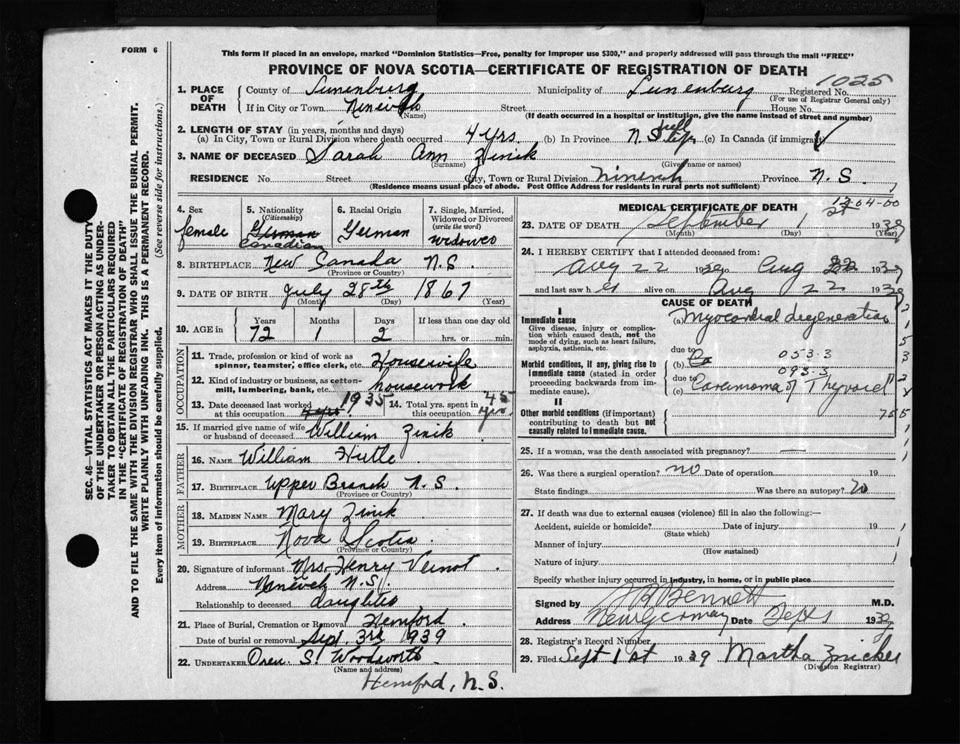 FORM 6
This form if placed in an envelope, marked "Dominion Statistics—Free, penalty for improper use $300," and properly addressed will pass through the mail "FREE"
PROVINCE OF NOVA SCOTIA—CERTIFICATE OF REGISTRATION OF DEATH
1025
1. PLACE OF DEATH County of Lunenburg Municipality of Lunenburg Registered No.
(For use of Registrar General only)
If in City or Town Nineveh Street House No.
(Name) (If death occurred in a hospital or institution, give its name instead of street and number)
2. LENGTH OF STAY (in years, months and days)
(a) In City, Town or Rural Division where death occurred 4 yrs. (b) In Province N.S. (c) In Canada (if immigrant)
3. NAME OF DECEASED Sarah Ann Zinik
(Surname) (Given name or names)
RESIDENCE No. Street City, Town or Rural Division Province N.S.
(Residence means usual place of abode. Post Office Address for residents in rural parts not sufficient)
4. Sex 5. Nationality (Citizenship) 6. Racial Origin 7. Single, Married, Widowed or Divorced (write the word)
female German Canadian German widowed
8. BIRTHPLACE New Canada N.S.
(Province or Country)
9. DATE OF BIRTH July 28th 1867
(Month) (Day) (Year)
10. AGE in Years Months Days If less than one day old
72 1 2 hrs. or min.
OCCUPATION
11. Trade, profession or kind of work as spinner, teamster, office clerk, etc. Housewife
12. Kind of industry or business, as cotton-mill, lumbering, bank, etc. housework
13. Date deceased last worked at this occupation 1935 14. Total yrs. spent in this occupation 45 yrs.
15. If married give name of wife or husband of deceased William Zinik
FATHER
16. NAME William Hirtle
17. BIRTHPLACE Upper Branch N.S.
(Province or Country)
MOTHER
18. MAIDEN NAME Mary Zinik
19. BIRTHPLACE Nova Scotia
(Province or Country)
20. Signature of informant Mrs. Henry Veinot
Address N.S.
Relationship to deceased daughter
21. Place of Burial, Cremation or Removal Hemford
Date of burial or removal Sept. 3rd 1939
22. UNDERTAKER Oren S. Wordsworth
(Name and address)
Hemford, N.S.
MEDICAL CERTIFICATE OF DEATH
23. DATE OF DEATH September 1 1939
(Month) (Day) (Year)
24. I HEREBY CERTIFY that I attended deceased from:
Aug 22 1939 to Aug 22 1939
and last saw her alive on Aug 22 1939
CAUSE OF DEATH
I
Immediate cause
Give disease, injury or complication which caused death, not the mode of dying, such as heart failure, asphyxia, asthenia, etc.
(a) Myocardial degeneration
due to
Morbid conditions, if any, giving rise to immediate cause (stated in order proceeding backwards from immediate cause).
(b) Ca 053.3
093.3
due to
(c) Carcinoma of Thyroid
II
Other morbid conditions (if important) contributing to death but not causally related to immediate cause.
25. If a woman, was the death associated with pregnancy? —
26. Was there a surgical operation? no Date of operation 19
State findings Was there an autopsy? no
27. If death was due to external causes (violence) fill in also the following:—
Accident, suicide or homicide? Date of injury 19
(State which)
Manner of injury
(How sustained)
Nature of injury
Specify whether injury occurred in industry, in home, or in public place
Signed by Bennett M.D.
Address New Germany Date Sept 1939
28. Registrar's Record Number
29. Filed Sept 1st 1939 Martha
(Division Registrar)
SEC. 46—VITAL STATISTICS ACT MAKES IT THE DUTY
OF THE UNDERTAKER OR PERSON ACTING AS UNDER-
TAKER TO OBTAIN ALL THE PARTICULARS REQUIRED
IN THE "CERTIFICATE OF REGISTRATION OF DEATH"
AND TO FILE THE SAME WITH THE DIVISION REGISTRAR WHO SHALL ISSUE THE BURIAL PERMIT.
WRITE PLAINLY WITH UNFADING INK. THIS IS A PERMANENT RECORD.
Every item of information should be carefully supplied. (See reverse side for instructions.)